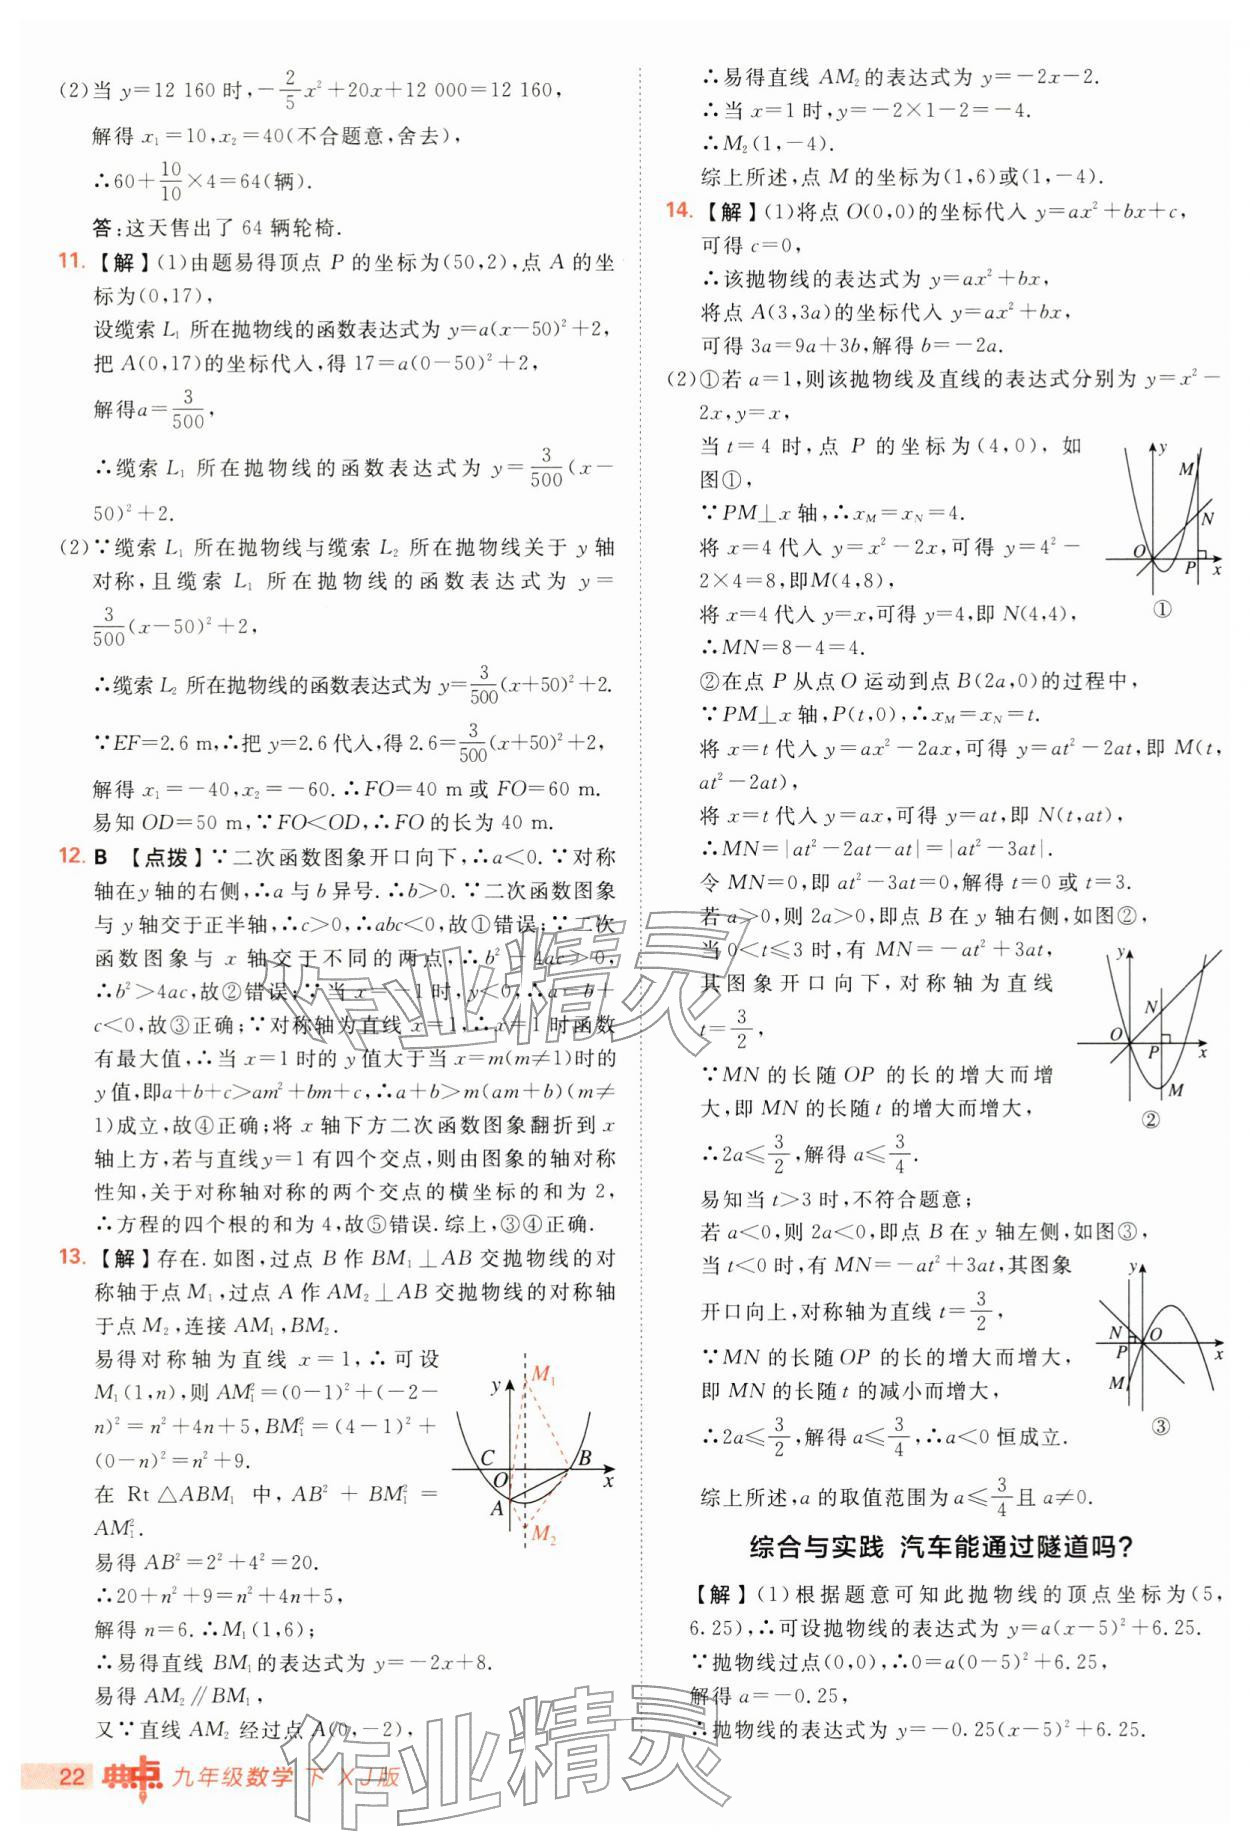 (2)当 y=12 160 时,-2/5x²+20x+12 000=12 160,
解得 x₁=10,x₂=40(不合题意,舍去),
∴60+10/10×4=64(辆).
答:这天售出了 64 辆轮椅.
11.【解】(1)由题易得顶点 P 的坐标为(50,2),点 A 的坐
标为(0,17),
设缆索 L₁ 所在抛物线的函数表达式为 y=a(x-50)²+2,
把 A(0,17)的坐标代入,得 17=a(0-50)²+2,
解得a=3/500,
∴缆索 L₁ 所在抛物线的函数表达式为 y=3/500(x-
50)²+2.
(2)∵缆索 L₁ 所在抛物线与缆索 L₂ 所在抛物线关于 y 轴
对称,且缆索 L₁ 所在抛物线的函数表达式为 y=
3/500(x-50)²+2,
∴缆索 L₂ 所在抛物线的函数表达式为 y=3/500(x+50)²+2.
∵EF=2.6 m,∴把 y=2.6 代入,得 2.6=3/500(x+50)²+2,
解得 x₁=-40,x₂=-60.∴FO=40 m 或 FO=60 m.
易知 OD=50 m,∵FO<OD,∴FO 的长为 40 m.
12. B 【点拨】∵二次函数图象开口向下,∴a<0.∵对称
轴在y 轴的右侧,∴a 与 b 异号.∴b>0.∵二次函数图象
与 y 轴交于正半轴,∴c>0,∴abc<0,故①错误;∵二次
函数图象与 x 轴交于不同的两点,∴b²-4ac>0,
∴b²>4ac,故②错误;∵当 x=-1时,y<0,∴a-b+
c<0,故③正确;∵对称轴为直线 x=1,∴x=1 时函数
有最大值,∴当 x=1 时的 y 值大于当 x=m(m≠1)时的
y 值,即a+b+c>am²+bm+c,∴a+b>m(am+b)(m≠
1)成立,故④正确;将 x 轴下方二次函数图象翻折到 x
轴上方,若与直线y=1 有四个交点,则由图象的轴对称
性知,关于对称轴对称的两个交点的横坐标的和为 2,
∴方程的四个根的和为 4,故⑤错误.综上,③④正确.
13.【解】存在.如图,过点 B 作 BM₁⊥AB 交抛物线的对
称轴于点 M₁,过点 A 作 AM₂⊥AB 交抛物线的对称轴
于点 M₂,连接 AM₁,BM₂.
易得对称轴为直线 x=1,∴可设
M₁(1,n),则 AM₁²=(0-1)²+(-2-
n)²=n²+4n+5,BM₁²=(4-1)²+
(0-n)²=n²+9.
在 Rt△ABM₁ 中,AB²+BM₁²=
AM₁².
易得 AB²=2²+4²=20.
∴20+n²+9=n²+4n+5,
解得 n=6.∴M₁(1,6);
∴易得直线 BM₁的表达式为 y=-2x+8.
易得 AM₂∥BM₁,
又∵直线 AM₂ 经过点 A(0,-2),
y M₁ C O B x A M₂
∴易得直线 AM₂的表达式为 y=-2x-2.
∴当 x=1 时,y=-2×1-2=-4.
∴M₂(1,-4).
综上所述,点 M 的坐标为(1,6)或(1,-4).
14.【解】(1)将点 O(0,0)的坐标代入 y=ax²+bx+c,
可得 c=0,
∴该抛物线的表达式为 y=ax²+bx,
将点 A(3,3a)的坐标代入 y=ax²+bx,
可得 3a=9a+3b,解得 b=-2a.
(2)①若 a=1,则该抛物线及直线的表达式分别为 y=x²-
2x,y=x,
当 t=4 时,点 P 的坐标为(4,0),如
图①,
∵PM⊥x 轴,∴x_M=x_N=4.
将 x=4 代入 y=x²-2x,可得 y=4²-
2×4=8,即M(4,8),
将 x=4 代入 y=x,可得 y=4,即 N(4,4),
∴MN=8-4=4.
y M N O P x
①
②在点 P 从点 O 运动到点 B(2a,0)的过程中,
∵PM⊥x 轴,P(t,0),∴x_M=x_N=t.
将 x=t 代入 y=ax²-2ax,可得 y=at²-2at,即 M(t,
at²-2at),
将 x=t 代入 y=ax,可得 y=at,即 N(t,at),
∴MN=|at²-2at-at|=|at²-3at|.
令 MN=0,即 at²-3at=0,解得 t=0 或 t=3.
若 a>0,则 2a>0,即点 B 在 y 轴右侧,如图②,
当 0<t≤3 时,有 MN=-at²+3at,
其图象开口向下,对称轴为直线
t=3/2,
∵MN 的长随 OP 的长的增大而增
大,即 MN 的长随 t 的增大而增大,
∴2a≤3/2,解得 a≤3/4.
y N O P x M
②
易知当 t>3 时,不符合题意;
若 a<0,则 2a<0,即点 B 在 y 轴左侧,如图③,
当 t<0 时,有 MN=-at²+3at,其图象
开口向上,对称轴为直线 t=3/2,
∵MN 的长随 OP 的长的增大而增大,
即 MN 的长随 t 的减小而增大,
∴2a≤3/2,解得 a≤3/4,∴a<0 恒成立.
y N O P x M
③
综上所述,a 的取值范围为 a≤3/4且 a≠0.
综合与实践 汽车能通过隧道吗?
【解】(1)根据题意可知此抛物线的顶点坐标为(5,
6.25),∴可设抛物线的表达式为 y=a(x-5)²+6.25.
∵抛物线过点(0,0),∴0=a(0-5)²+6.25,
解得 a=-0.25,
∴抛物线的表达式为 y=-0.25(x-5)²+6.25.
22 典点 九年级数学 下 XJ版
作业精灵
作业精灵